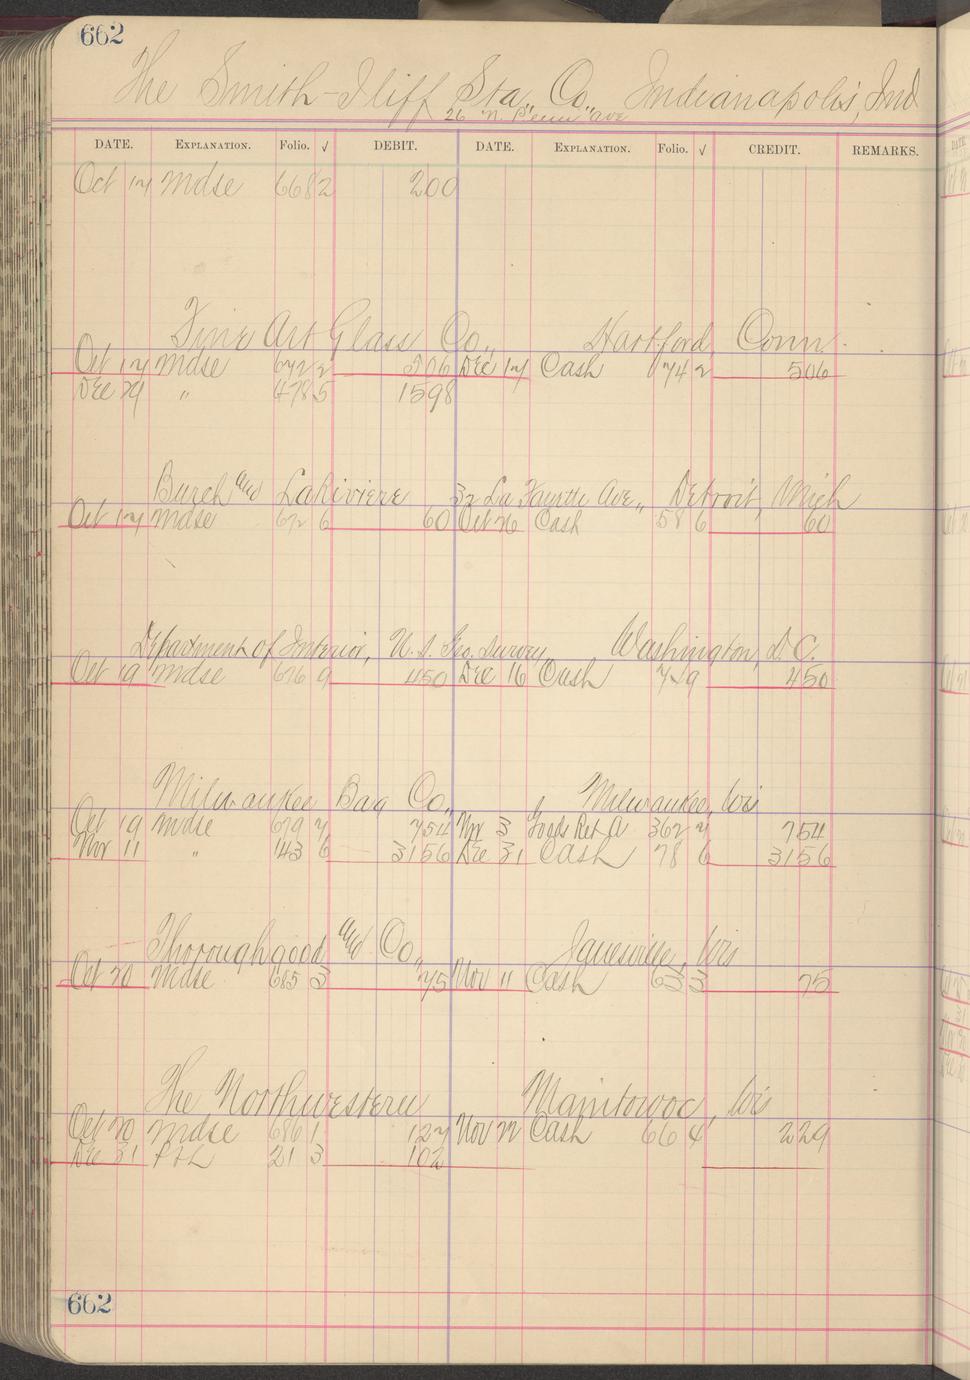 662
The Smith-Iliff Sta. Co., Indianapolis, Ind
26 N. Penn ave
DATE. EXPLANATION. Folio. √ DEBIT. DATE. EXPLANATION. Folio. √ CREDIT. REMARKS.
Oct 17 Mdse 668 2 200
Fine Art Glass Co., Hartford, Conn.
Oct 17 Mdse 672 2 506 Dec 17 Cash 74 2 506
Dec 29 " 478 5 1598
Burch and LaRiviere 32 La Fayette Ave., Detroit, Mich
Oct 17 Mdse 672 6 60 Oct 26 Cash 58 6 60
Department of Interior, U. S. Geo. Survey, Washington, D. C.
Oct 19 Mdse 676 9 450 Dec 16 Cash 72 9 450
Milwaukee Bag Co., Milwaukee, Wis
Oct 19 Mdse 679 7 754 Nov 3 Goods Ret'd 362 7 754
Nov 11 " 143 6 3156 Dec 31 Cash 78 6 3156
Thoroughgood and Co., Janesville, Wis
Oct 20 Mdse 685 3 75 Nov 11 Cash 63 3 75
The Northwestern Manitowoc, Wis
Oct 20 Mdse 686 1 127 Nov 22 Cash 66 4 229
Dec 31 P+L 21 3 102
662